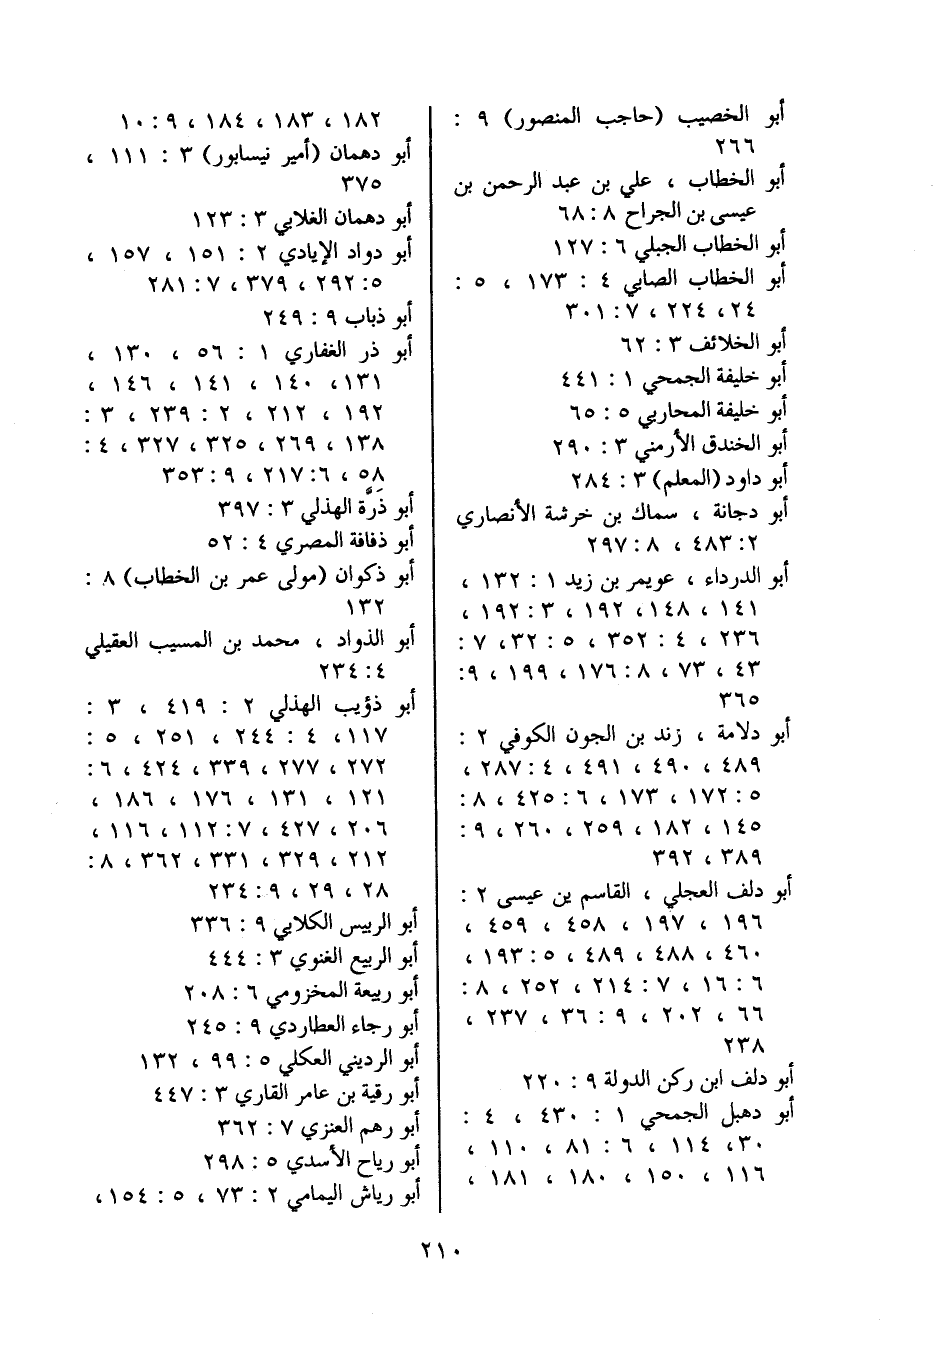 أبو الخصيب (حاجب المنصور) ٩ :
٢٦٦
أبو الخطاب ، علي بن عبد الرحمن بن
عيسى بن الجراح ٨ : ٦٨
أبو الخطاب الجبلي ٦ : ١٢٧
أبو الخطاب الصابي ٤ : ١٧٣ ، ٥ :
٢٤، ٢٢٤ ، ٧: ٣٠١
أبو الخلائف ٣ : ٦٢
أبو خليفة الجمحي ١ : ٤٤١
أبو خليفة المحاربي ٥ : ٦٥
أبو الخندق الأرمني ٣ : ٢٩٠
أبو داود (المعلم) ٣ : ٢٨٤
أبو دجانة ، سماك بن خرشة الأنصاري
٢: ٤٨٣ ، ٨: ٢٩٧
أبو الدرداء ، عويمر بن زيد ١ : ١٣٢ ،
١٤١ ، ١٤٨، ١٩٢ ، ٣: ١٩٢ ،
٢٣٦ ، ٤ : ٣٥٢ ، ٥ : ٣٢، ٧ :
٤٣ ، ٧٣ ، ٨: ١٧٦ ، ١٩٩ ، ٩:
٣٦٥
أبو دلامة ، زند بن الجون الكوفي ٢ :
٤٨٩ ، ٤٩٠ ، ٤٩١ ، ٤ : ٢٨٧ ،
٥ : ١٧٢ ، ١٧٣ ، ٦ : ٤٢٥ ، ٨ :
١٤٥ ، ١٨٢ ، ٢٥٩ ، ٢٦٠ ، ٩ :
٣٨٩ ، ٣٩٢
أبو دلف العجلي ، القاسم بن عيسى ٢ :
١٩٦ ، ١٩٧ ، ٤٥٨ ، ٤٥٩ ،
٤٦٠ ، ٤٨٨ ، ٤٨٩ ، ٥ : ١٩٣ ،
٦ : ١٦ ، ٧ : ٢١٤ ، ٢٥٢ ، ٨ :
٦٦ ، ٢٠٢ ، ٩ : ٣٦ ، ٢٣٧ ،
٢٣٨
أبو دلف ابن ركن الدولة ٩ : ٢٢٠
أبو دهبل الجمحي ١ : ٤٣٠ ، ٤ :
٣٠، ١١٤ ، ٦ : ٨١ ، ١١٠ ،
١١٦ ، ١٥٠ ، ١٨٠ ، ١٨١ ،
١٨٢ ، ١٨٣ ، ١٨٤ ، ٩ : ١٠
أبو دهمان (أمير نيسابور) ٣ : ١١١ ،
٣٧٥
أبو دهمان الغلابي ٣ : ١٢٣
أبو دواد الإيادي ٢ : ١٥١ ، ١٥٧ ،
٥: ٢٩٢ ، ٣٧٩ ، ٧ : ٢٨١
أبو ذباب ٩ : ٢٤٩
أبو ذر الغفاري ١ : ٥٦ ، ١٣٠ ،
١٣١، ١٤٠ ، ١٤١ ، ١٤٦ ،
١٩٢ ، ٢١٢ ، ٢ : ٢٣٩ ، ٣ :
١٣٨ ، ٢٦٩ ، ٣٢٥ ، ٣٢٧ ، ٤ :
٥٨ ، ٦: ٢١٧ ، ٩ : ٣٥٣
أبو ذَرَّة الهذلي ٣ : ٣٩٧
أبو ذفافة المصري ٤ : ٥٢
أبو ذكوان (مولى عمر بن الخطاب) ٨ :
١٣٢
أبو الذواد ، محمد بن المسيب العقيلي
٤ : ٢٣٤
أبو ذؤيب الهذلي ٢ : ٤١٩ ، ٣ :
١١٧، ٤ : ٢٤٤ ، ٢٥١ ، ٥ :
٢٧٢ ، ٢٧٧ ، ٣٣٩ ، ٤٢٤ ، ٦:
١٢١ ، ١٣١ ، ١٧٦ ، ١٨٦ ،
٢٠٦ ، ٤٢٧ ، ٧ : ١١٢ ، ١١٦ ،
٢١٢ ، ٣٢٩ ، ٣٣١ ، ٣٦٢ ، ٨:
٢٨ ، ٢٩ ، ٩ : ٢٣٤
أبو الربيس الكلابي ٩ : ٣٣٦
أبو الربيع الغنوي ٣ : ٤٤٤
أبو ربيعة المخزومي ٦ : ٢٠٨
أبو رجاء العطاردي ٩ : ٢٤٥
أبو الرديني العكلي ٥ : ٩٩ ، ١٣٢
أبو رقية بن عامر القاري ٣ : ٤٤٧
أبو رهم العنزي ٧ : ٣٦٢
أبو رياح الأسدي ٥ : ٢٩٨
أبو رياش اليمامي ٢ : ٧٣ ، ٥ : ١٥٤ ،
٢١٠